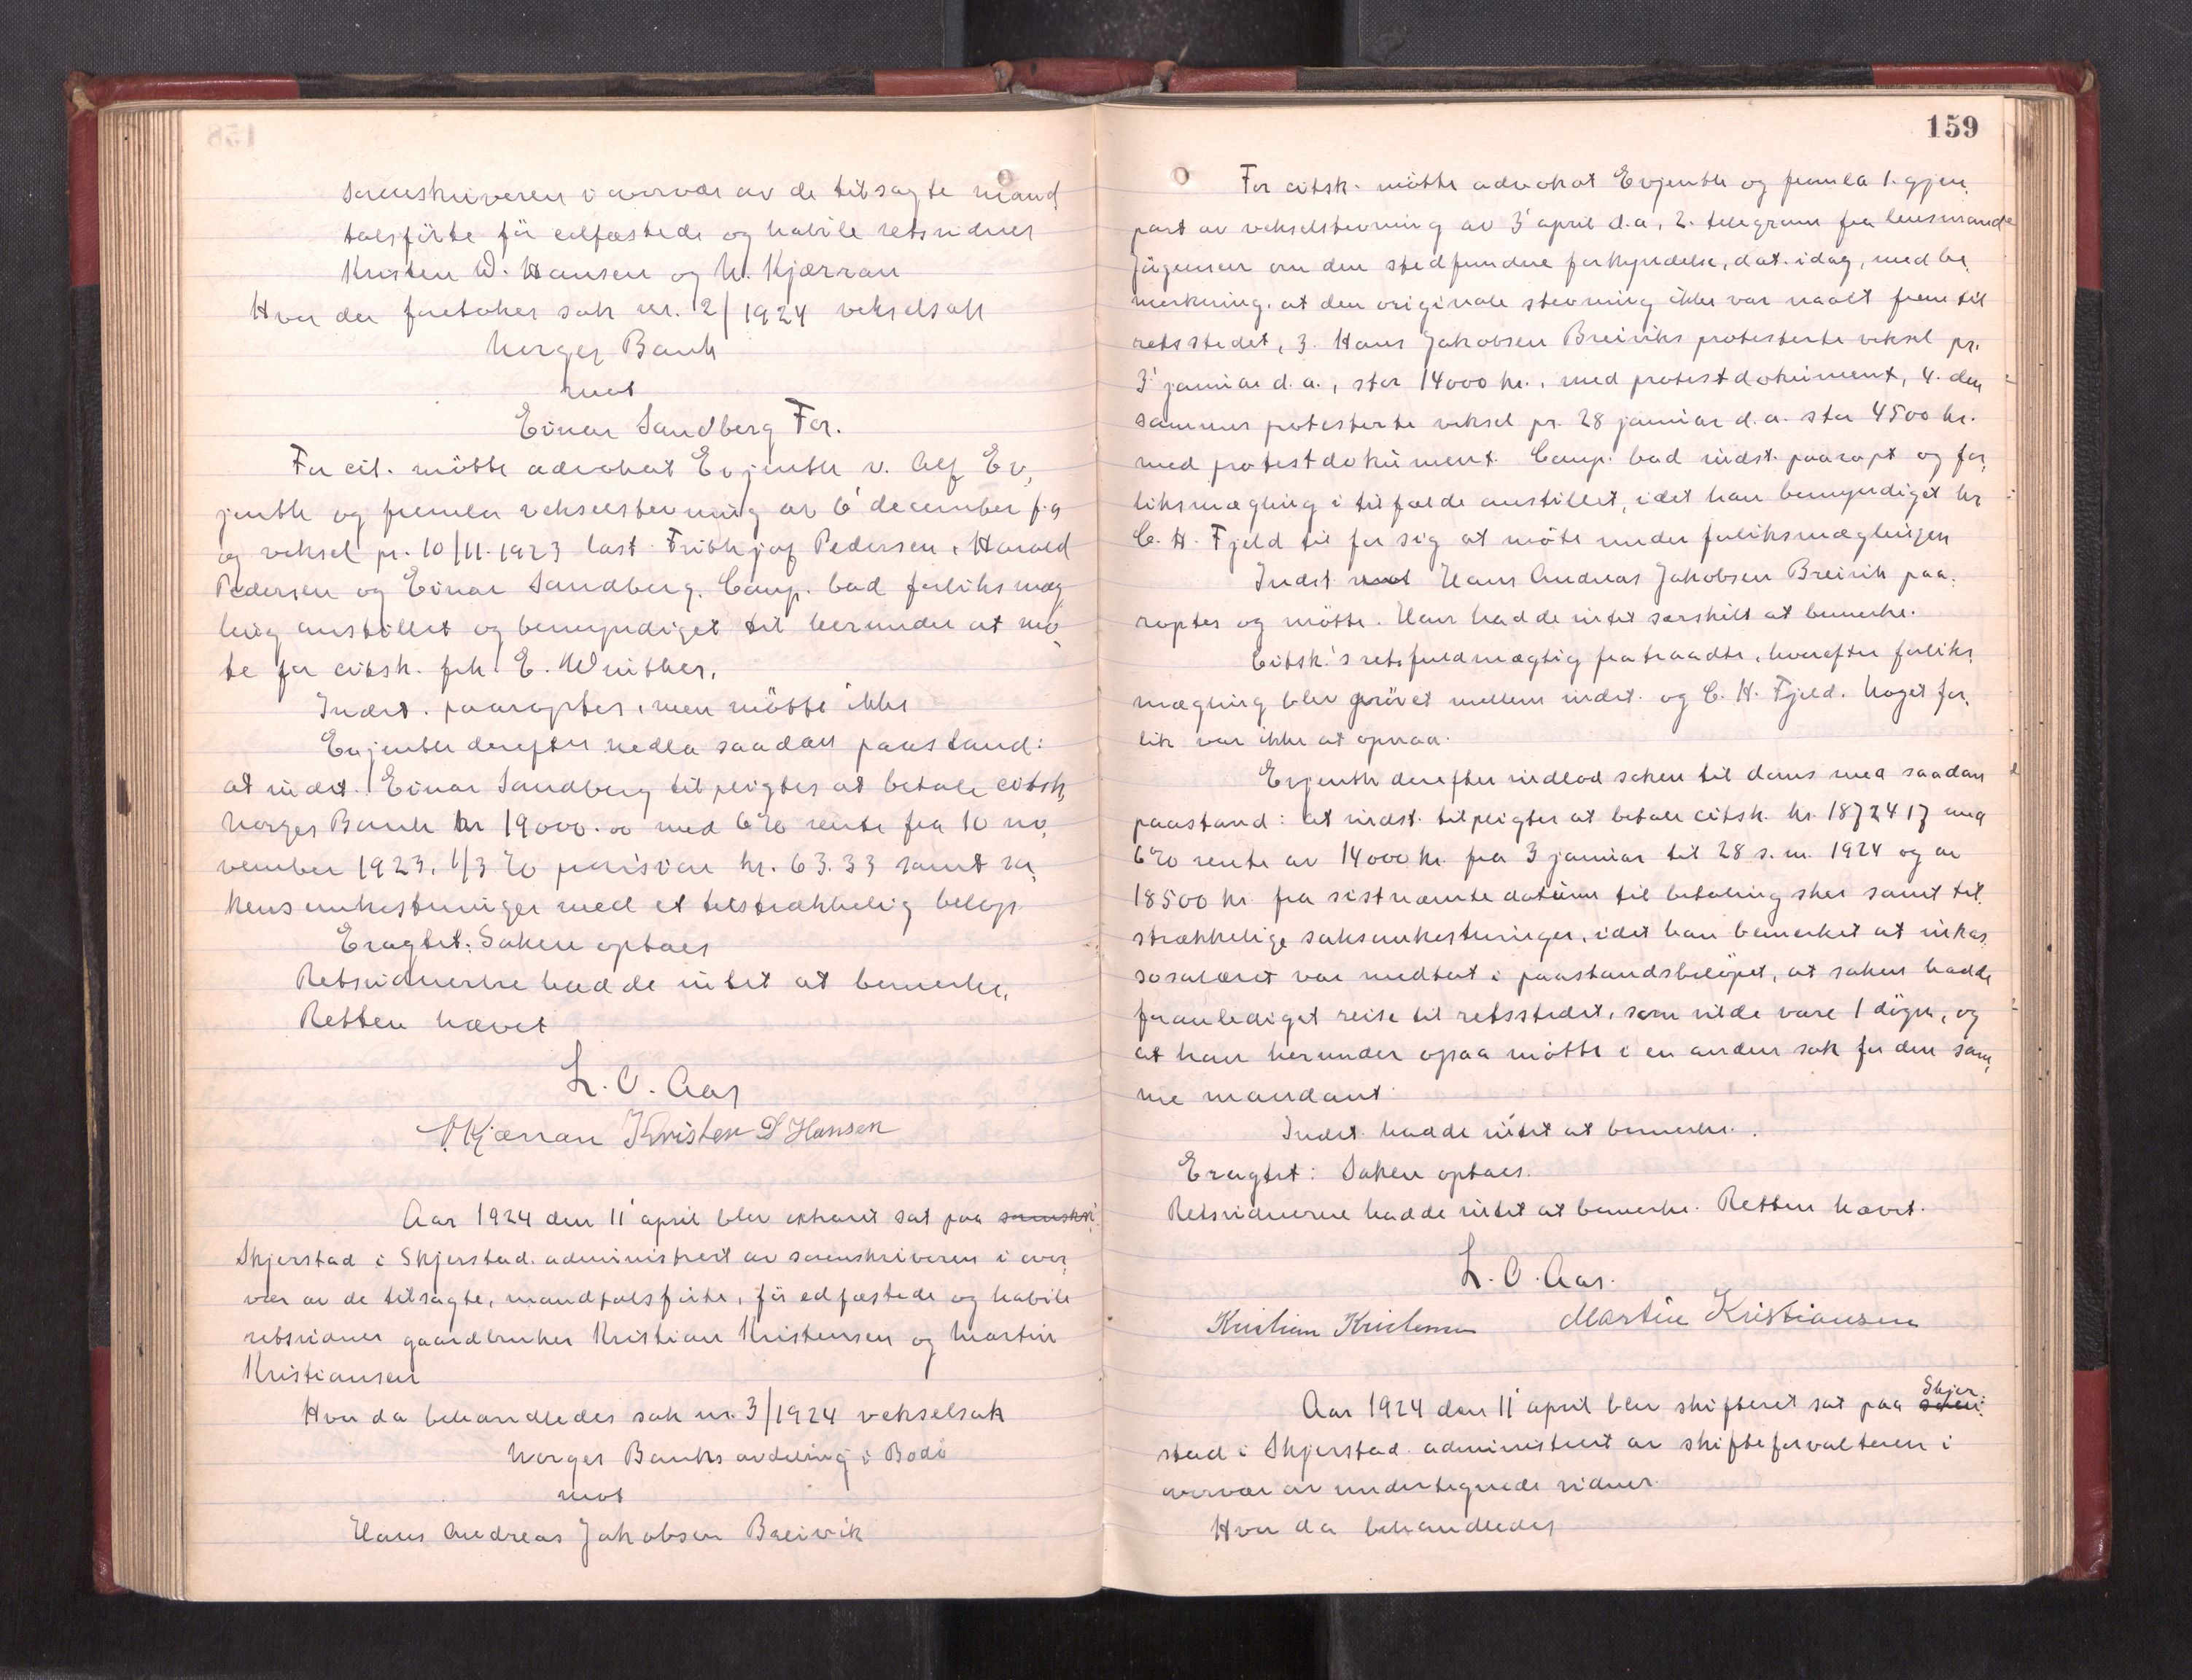 sorenskriveren i overvær av de tilsagte mand
talsförte för edfæstede og habile retsvidner
Kristen D. Hansen og N. Kjærran
Hvor der foretokes sak nr. 2/1924 vekselsak
Norges Bank
mot
Einar Sandberg For.
For cit. mötte advokat Evjenth v. Alf Ev,
jenth og fremla vekselstevning av 6' december f.a
og veksel pr. 10/11.1923 Frithjof Pedersen, Harald
Pedersen og Einar Sandberg. Comp. bad forliksmæg
ling anstillet og bemyndiget til herunder at mö,
te for citsk. E. Winther.
Indst. paaroptes, men mötte ikke
Evjenth derefter nedla saadan paastand:
at indst. Einar Sandberg tilpligtes at betale citsk,
Norges Bank kr 19000.00 med 6% rente fra 10 no,
vember 1923, 1/3 % provision kr. 63.33 samt sa,
kens omkostninger med et tilstrækkelig belöp
Eragtet: Saken optaes
Retsvidnerne hadde intet at bemerke.
Retten hævet
L. O. Aas
N. Kjærran Kristen D Hansen
Aar 1924 den 11' april blev ekstraret sat paa sorenskri
Skjerstad i Skjerstad administrert av sorenskriveren i over,
vær av de tilsagte, mandtalsförte, för edfæstede og habile
retsvidner gaardbruker Kristian Kristensen og Martin
Kristiansen
Hvor da behandledes sak nr. 3/1924 vekselsak
Norges Banks avdeling i Bodö
mot
Hans Andreas Jakobsen Breivik
159
For citsk. mötte advokat Evjenth og fremla 1. gjen,
part av vekselstevning av 3' april d.a, 2. telegram fra lensmand
Jörgensen om den stedfundne forkyndelse, dat. idag, med be,
merkning at den originale stevning ikke var naadt frem til
retsstedet, 3. Hans Jakobsen Breiviks protesterte veksel pr.
3' januar d.a., stor 14000 kr., med protestdokument, 4. den
sammes protesterte veksel pr. 28 januar d.a. stor 4500 kr.
med protestdokument. Comp. bad indst. paaropt og for,
liksmægling i tilfælde anstillet, idet han bemyndiget hr
C. H. Fjeld til for sig at möte under forliksmæglingen
Indst Hans Andreas Jakobsen Breivik paa,
roptes og mötte. Han hadde intet særskilt at bemerke.
Citsk.'s retsfuldmægtig fratraadte, hvorefter forliks,
mægling blev prövet mellem indst. og C. H. Fjeld. Noget for,
lik var ikke at opnaa.
Evjenth derefter indlod saken til doms med saadan
paastand: at indst. tilpligtes at betale citsk. kr. 18724 17 med
6% rente av 14000 kr. fra 3 januar til 28 s. m. 1924 og av
18500 kr fra sistnævnte datum til betaling sker samt til,
strækkelige saksomkostninger, idet han bemerket at inkas,
sosalæret var medtat i paastandsbelöpet, at saken hadde
foranlediget reise til retsstedet, som vilde vare 1 dögn, og
at han herunder ogsaa mötte i en anden sak for den sam,
me mandant.
Indst. hadde intet at bemerke.
Eragtet: Saken optaes.
Retsvidnerne hadde intet at bemerke. Retten hævet.
L. O. Aas.
Kristian Kristensen Martin Kristiansen
Aar 1924 den 11' april blev skifteret sat paa Skjer,
stad i Skjerstad administrert av skifteforvalteren i
overvær av undertegnede vidner.
Hvor da behandledes